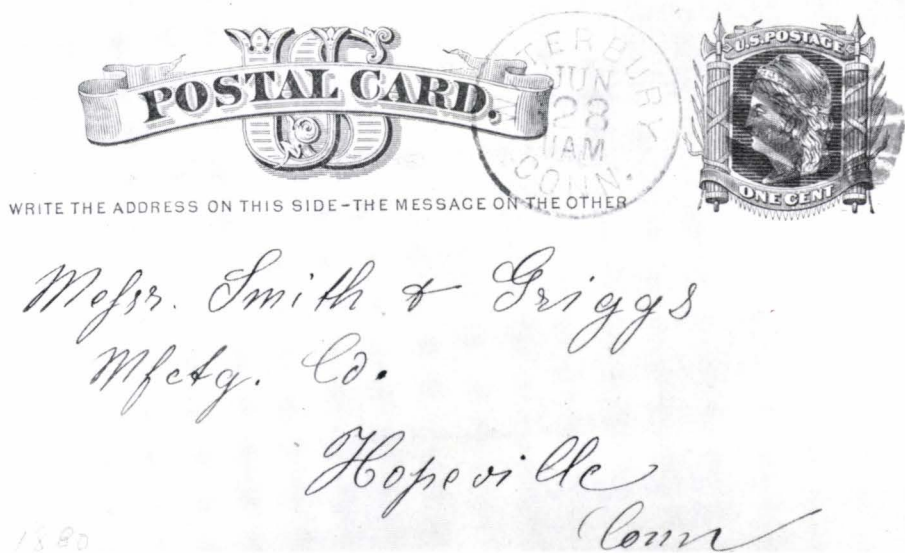 US
POSTAL CARD.
WATERBURY
JUN
28
11AM
CONN.
U.S. POSTAGE
ONE CENT
WRITE THE ADDRESS ON THIS SIDE-THE MESSAGE ON THE OTHER
Messr. Smith & Griggs
Mfctg. Co.
Hopeville
Conn
1880